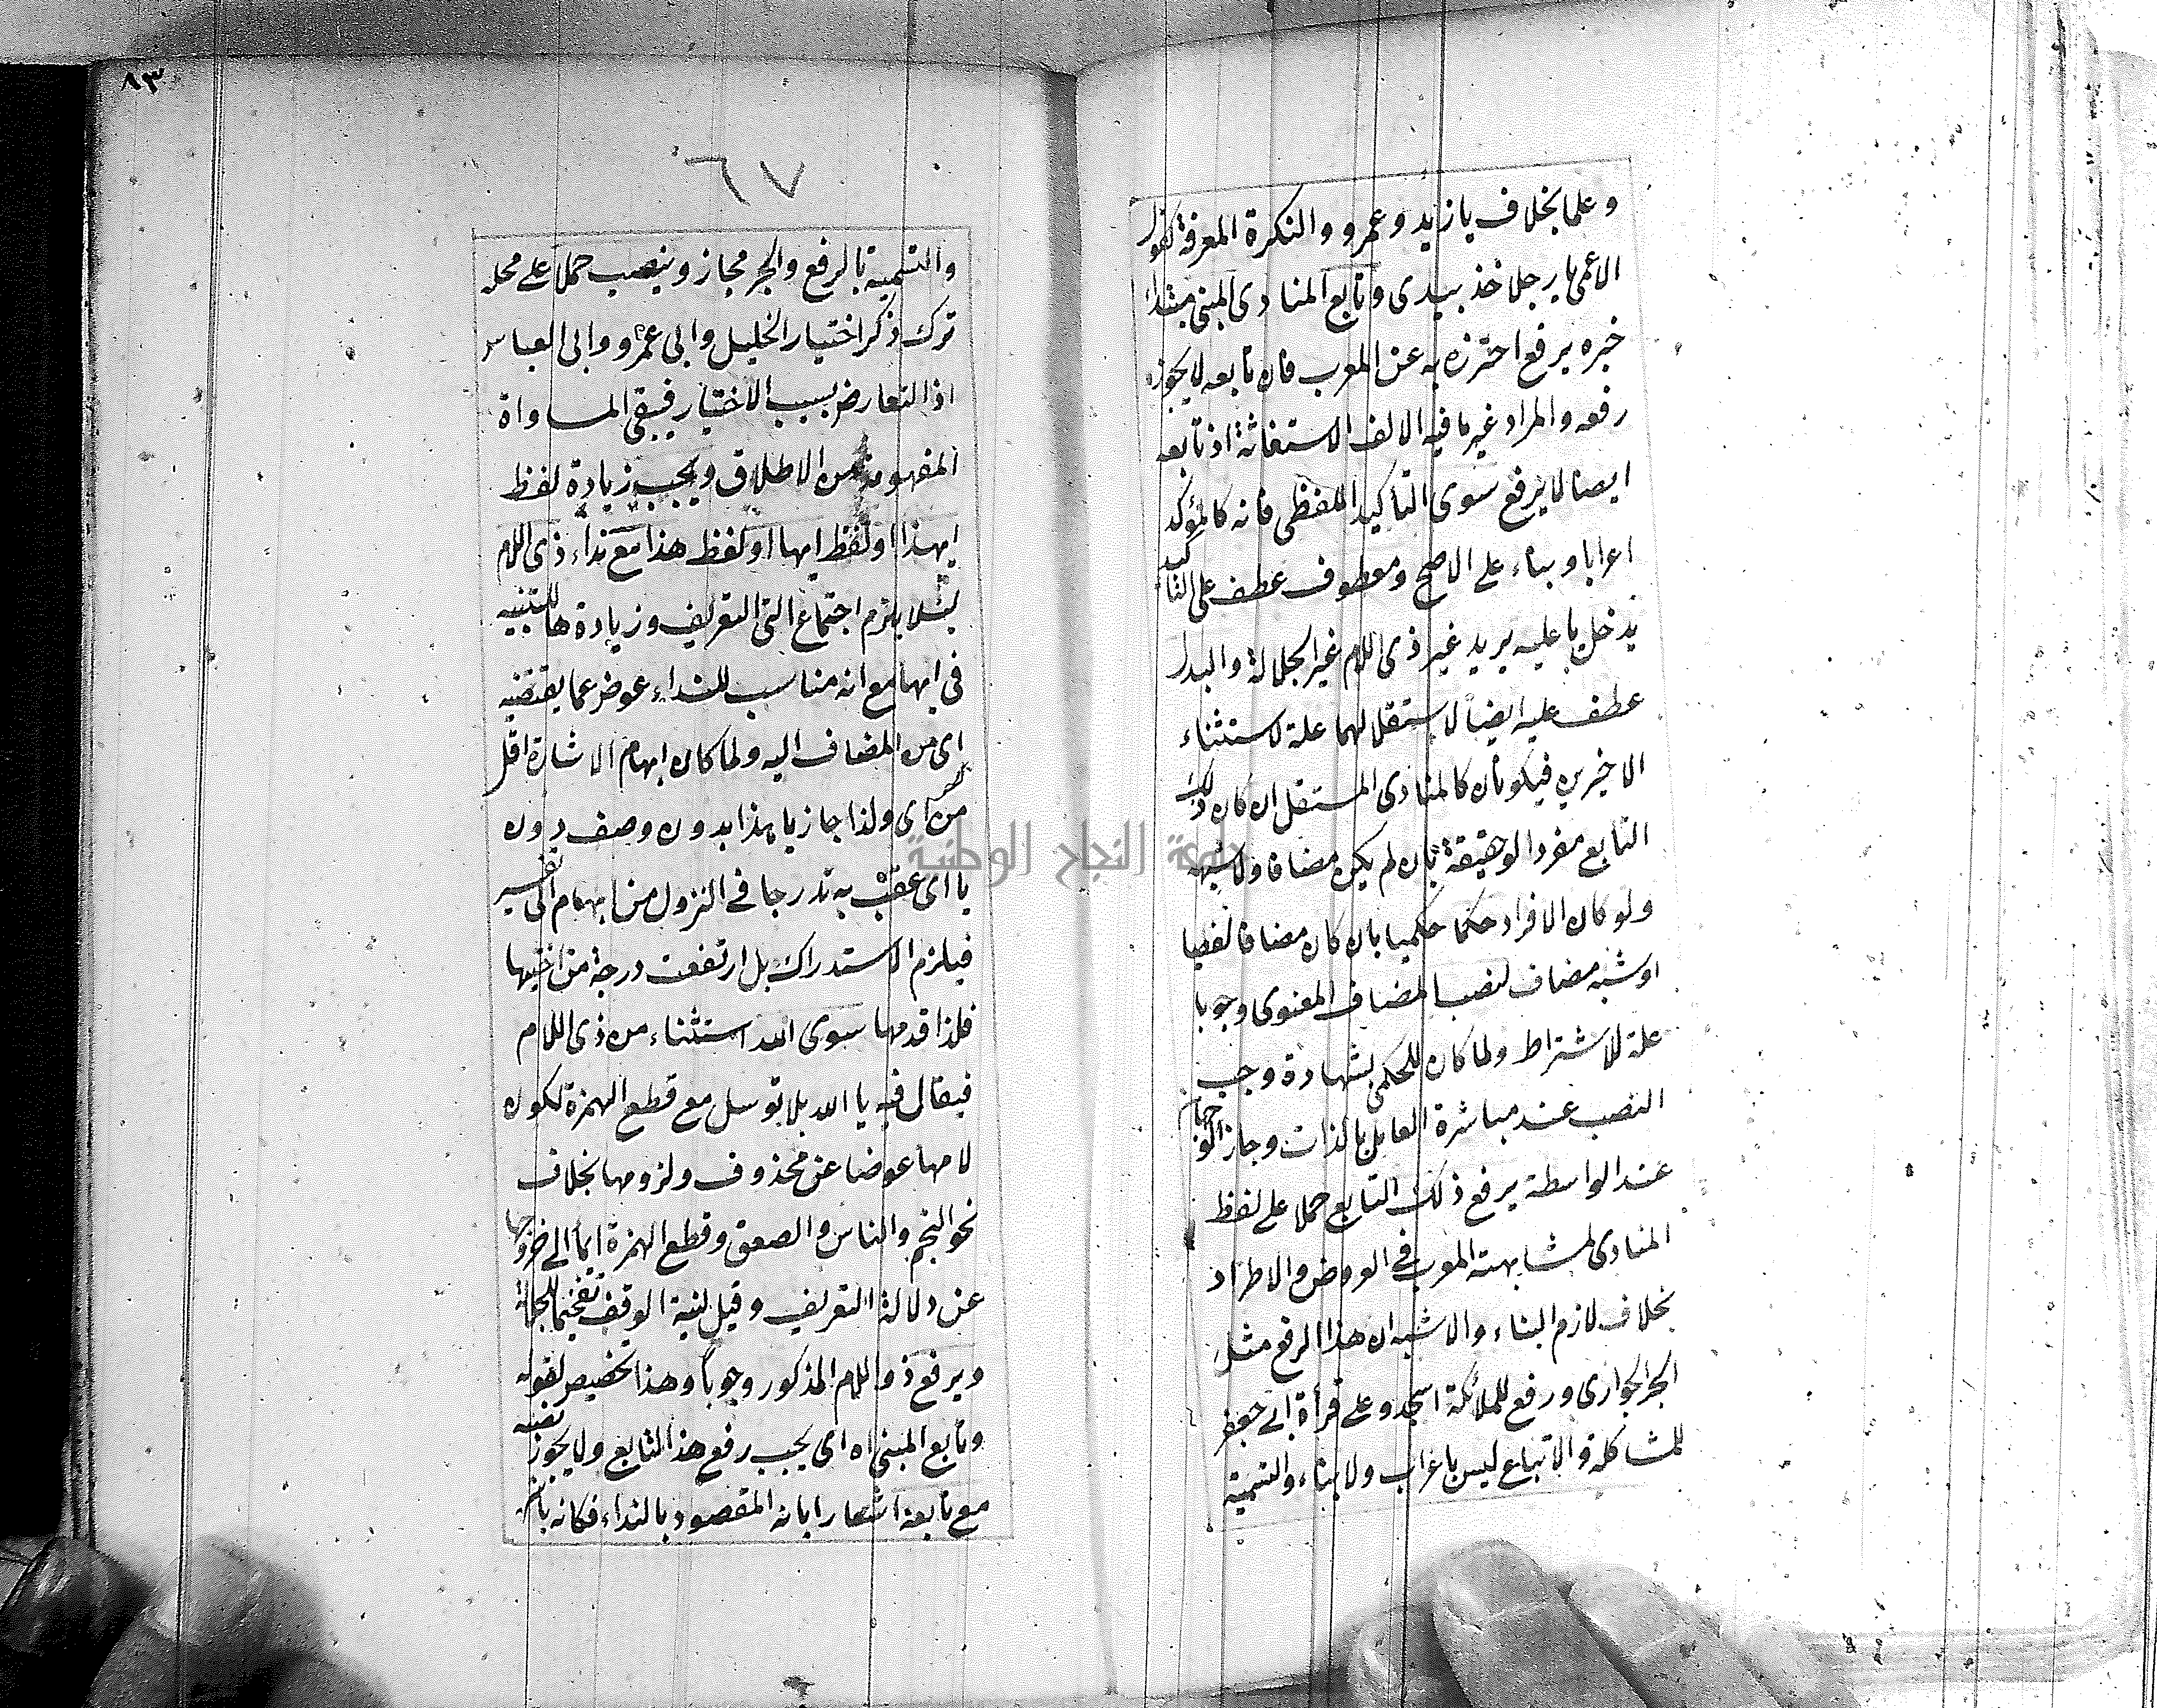 وعلما بخلاف يا زيد وعمرو والنكرة المعرفة كقول
الاعمى يا رجلا خذ بيدى وتابع المنادى المبنى مبتدأ
خبره يرفع احترزه به عن المعرب فان تابعه لا يجوز
رفعه والمراد غير ما فيه الالف الاستغاثة اذ تابعه
ايضا لا يرفع سوى التأكيد اللفظى فانه كالمؤكد
اعرابا وبناء على الاصح ومعطوف عطف على التأكيد
يدخل يا عليه يريد غير ذى اللام غير الجلالة والبدل
عطف عليه ايضا لاستقلالهما علة لاستثناء
الاخيرين فيكونان كالمنادى المستقل ان كان ذلك
التابع مفردا لو حقيقة بان لم يكن مضافا ولا شبهه
ولو كان الافراد حكما حكميا بان كان مضافا لفظيا
او شبه مضاف لنصب المضاف المعنوى وجوبا
علة للاشتراط ولما كان للحكمى شهادة وجب
النصب عند مباشرة العامل بالذات وجاز الوجهان
عند الواسطة يرفع ذلك التابع حملا على لفظ
المنادى لمشابهته المعرب فى العروض والاطراد
بخلاف لازم البناء والاشبه ان هذا الرفع مثل
الجر الجوارى ورفع للملائكة اسجدو على قرأة ابى جعفر
للمشاكلة والاتباع ليس باعراب ولا بناء والتسمية
٨٣
٦٧
والتسمية بالرفع والجر مجاز وينصب حملا على محله
ترك ذكر اختيار الخليل وابى عمرو وابى العباس
اذ التعارض بسبب الاختيار فيبقى المساواة
المفهومة من الاطلاق ويجب زيادة لفظ
ايهذا او لفظ ايها او لفظ هذا مع نداء ذى اللام
لئلا يلزم اجتماع التى التعريف وزيادة ها للتنبيه
فى ايها مع انه مناسب للنداء عوض عما يقتضيه
اى من المضاف اليه ولما كان ابهام الاشارة اقل
من اى ولذا جاز يا هذا بدون وصف دون
يا اى عقب به تدرجا فى النزول من ابهام الى تفسير
فيلزم الاستدراك بل ارتفعت درجة من اختيها
فلذا قدمها سوى الله استثناء من ذى اللام
فيقال فيه يا الله بلا توسل مع قطع الهمزة لكون
لامها عوضا عن محذوف ولزومها بخلاف
نحو النجم والناس والصعق وقطع الهمزة ايماء الى خروجها
عن دلالة التعريف وقيل لنية الوقف تفخيما للجلالة
ويرفع ذو اللام المذكور وجوبا وهذا تخصيص لقوله
وتابع المبنى اه اى يجب رفع هذا التابع ولا يجوز نصبه
مع تابعه اشعارا بانه المقصود بالنداء فكانه باشره
جامعة النجاح الوطنية